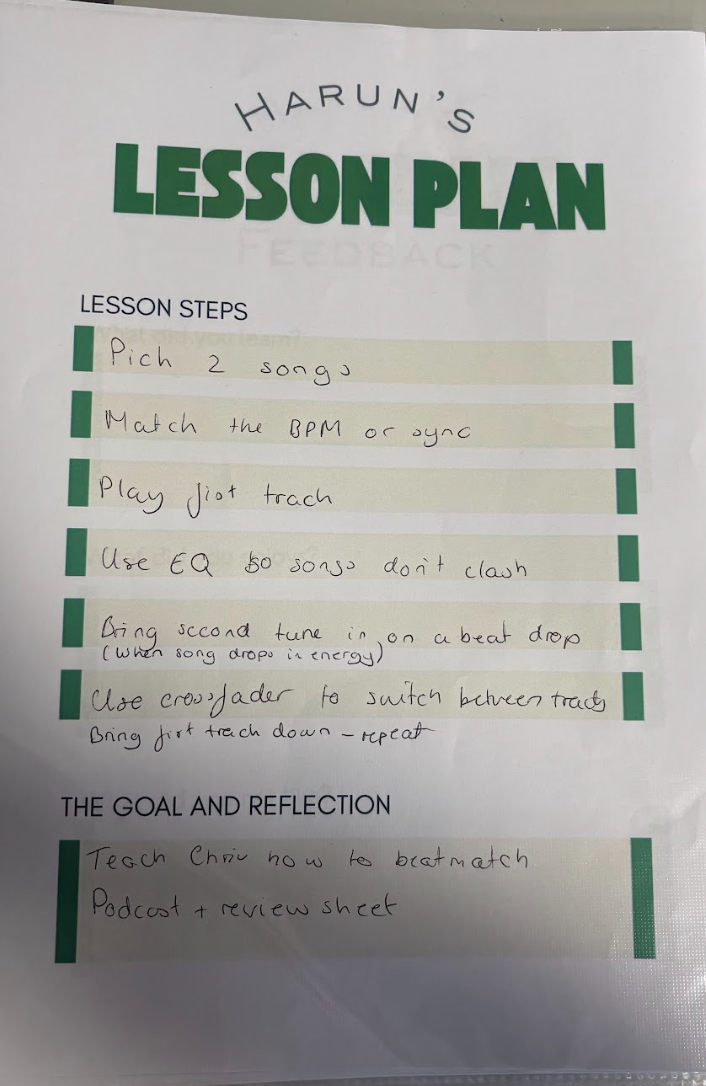 HARUN'S
LESSON PLAN
FEEDBACK
LESSON STEPS
What did you learn?
Pick 2 songs
Match the BPM or sync
Play first track
Use EQ so songs don't clash
Bring second tune in on a beat drop
(When song drops in energy)
Use crossfader to switch between tracks
Bring first track down - repeat
THE GOAL AND REFLECTION
Teach Chris how to beatmatch
Podcast + review sheet